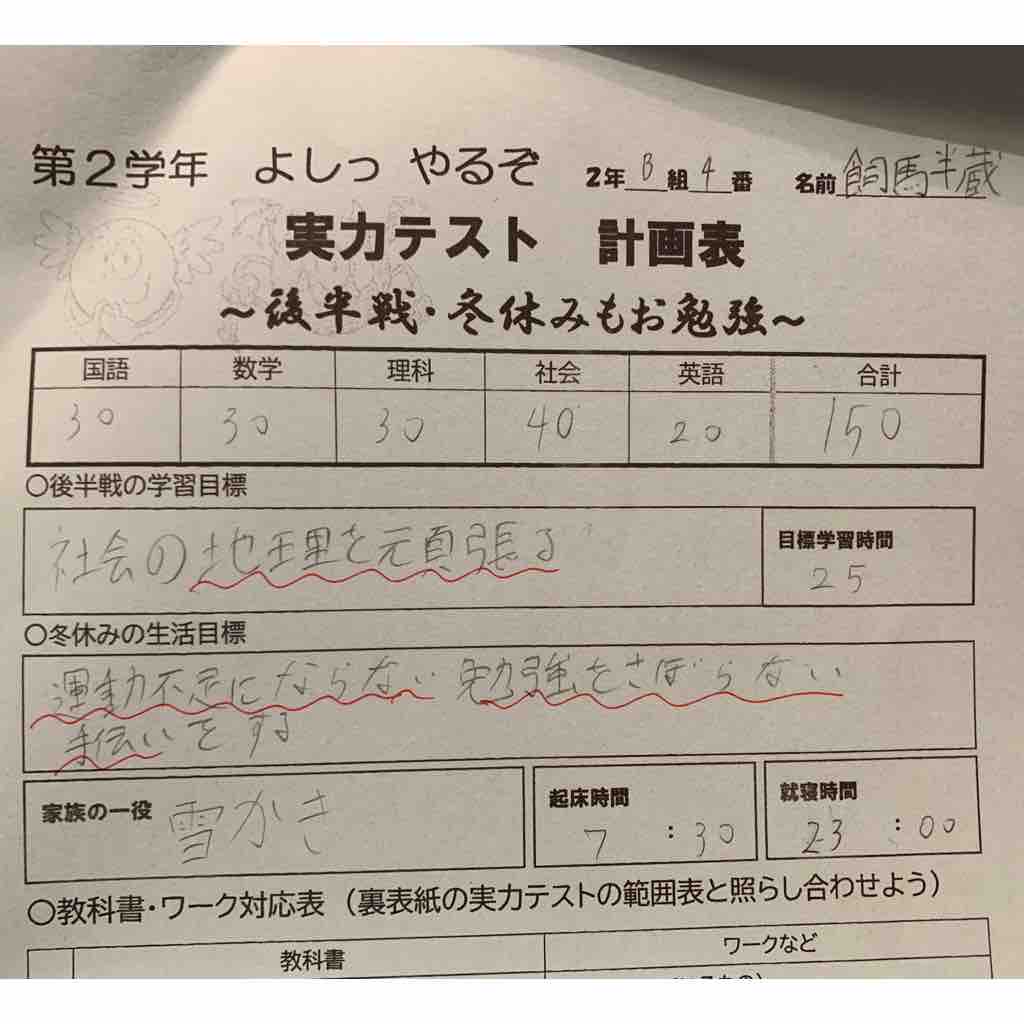 第2学年 よしっ やるぞ 2年B組4番 名前飼馬半蔵
実力テスト 計画表
～後半戦・冬休みもお勉強～
国語 数学 理科 社会 英語 合計
30 30 30 40 20 150
○後半戦の学習目標
社会の地理を頑張る
目標学習時間
25
○冬休みの生活目標
運動不足にならない 勉強をさぼらない
手伝いをする
家族の一役 雪かき
起床時間
7:30
就寝時間
23:00
○教科書・ワーク対応表（裏表紙の実力テストの範囲表と照らし合わせよう）
教科書 ワークなど